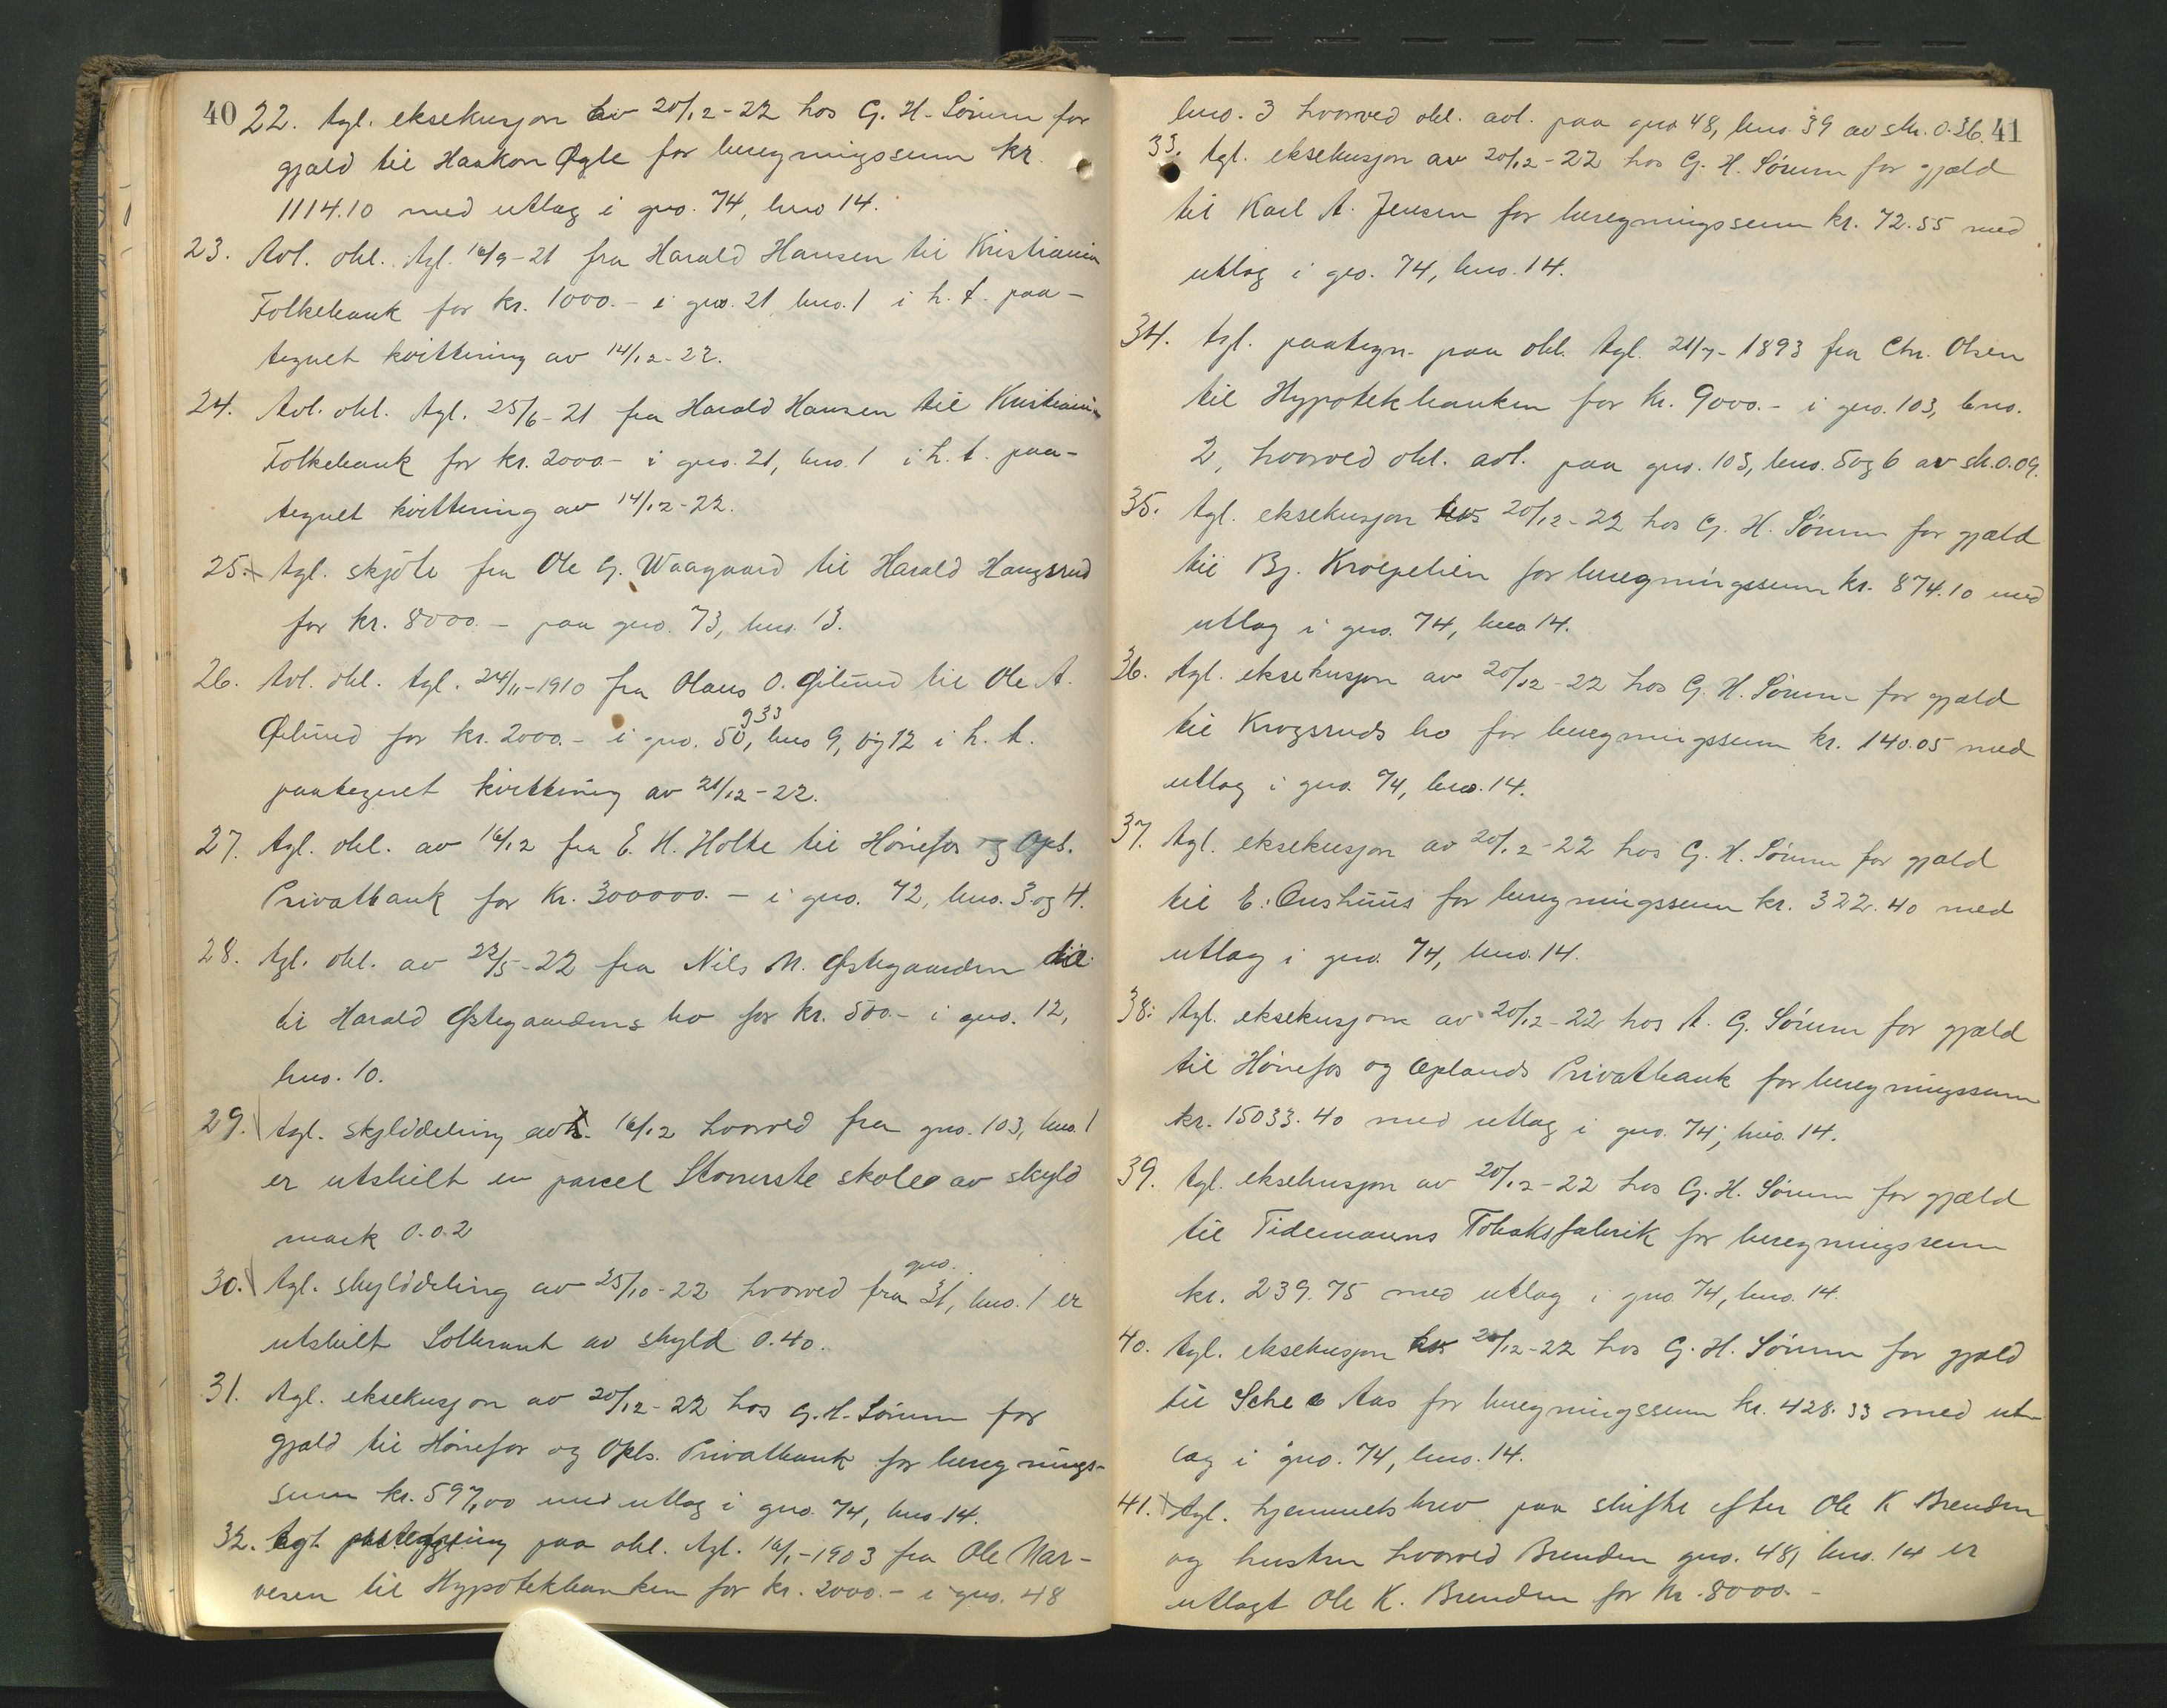 40
22. tgl. eksekusjon av 20/12-22 hos G. H. Sørum for
gjæld til Haakon Øgle for beregningssum kr.
1114.10 med utlæg i gno. 74, bno 14.
23. Avl. obl. tgl. 16/9-21 fra Harald Hansen til Kristiania
Folkebank for kr. 1000.- i gno. 21, bno. 1 i h. t. paa-
tegnet kvittering av 14/12-22.
24. Avl. obl. tgl. 25/6-21 fra Harald Hansen til Kristiania
Folkebank for kr. 2000.- i gno. 21, bno. 1 i h. t. paa-
tegnet kvittering av 14/12-22.
25. tgl. skjøte fra Ole G. Waagaard til Harald Haugsrud
for kr. 8000.- paa gno. 73, bno. 13.
26. Avl. obl. tgl. 24/11-1910 fra Olaus O. Øilund til Ole A.
Øilund for kr. 2000.- i gno. 50, bno 9, og 12 i h. t.
paategnet kvittering av 21/12-22.
27. tgl. obl. av 16/12 fra E. H. Holte til Hønefos og Opl.
Privatbank for kr. 300000.- i gno. 72, bno. 3 og 4.
28. tgl. obl. av 22/5-22 fra Nils M. Østegaarden
til Harald Østegaardens bo for kr. 500.- i gno. 12,
bno. 10.
29. tgl. skylddeling av 16/12 hvorved fra gno. 103, bno. 1
er utskilt en parcel skole av skyld
mark 0.02
30. tgl. skylddeling av 25/10-22 hvorved fra gno. 31, bno. 1 er
utskilt Solbraut av skyld 0.40.
31. tgl. eksekusjon av 20/12-22 hos G. H. Sørum for
gjæld til Hønefos og Opls. Privatbank for beregnings-
sum kr. 597,00 med utlæg i gno. 74, bno. 14.
32. tgl. paategning paa obl. tgl. 16/1-1903 fra Ole Nar-
vesen til Hypotekbanken for kr. 2000.- i gno. 48
41
bno. 3 hvorved obl. avl. paa gno 48, bno. 39 av sk. 0.36.
33. tgl. eksekusjon av 20/12-22 hos G. H. Sørum for gjæld
til Karl A. Jensen for beregningssum kr. 72.55 med
utlæg i gno. 74, bno. 14.
34. tgl. paategn. paa obl. tgl. 21/7-1893 fra Chr. Olsen
til Hypotekbanken for kr. 9000.- i gno. 103, bno.
2, hvorved obl. avl. paa gno. 103, bno. 5 og 6 av sk. 0.09.
35. tgl. eksekusjon av 20/12-22 hos G. H. Sørum for gjæld
til Bj. Kroepelien for beregningssum kr. 874.10 med
utlæg i gno. 74, bno. 14.
36. tgl. eksekusjon av 20/12-22 hos G. H. Sørum for gjæld
til Krogsruds bo for beregningssum kr. 140.05 med
utlæg i gno. 74, bno. 14.
37. tgl. eksekusjon av 20/12-22 hos G. H. Sørum for gjæld
til E. for beregningssum kr. 322.40 med
utlæg i gno. 74, bno. 14.
38. tgl. eksekusjon av 20/12-22 hos A. G. Sørum for gjæld
til Hønefos og Oplands Privatbank for beregningssum
kr. 15033.40 med utlæg i gno. 74, bno. 14.
39. tgl. eksekusjon av 20/12-22 hos G. H. Sørum for gjæld
til Tidemanns Tobaksfabrik for beregningssum
kr. 239.75 med utlæg i gno 74, bno. 14.
40. tgl. eksekusjon av 20/12-22 hos G. H. Sørum for gjæld
til Aas for beregningssum kr. 428.33 med ut-
læg i gno. 74, bno. 14.
41. tgl. hjemmelsbrev paa skifte efter Ole K Brenden
og hustru hvorved Brenden gno. 48, bno. 14 er
utlagt Ole K. Brenden for kr. 8000.-